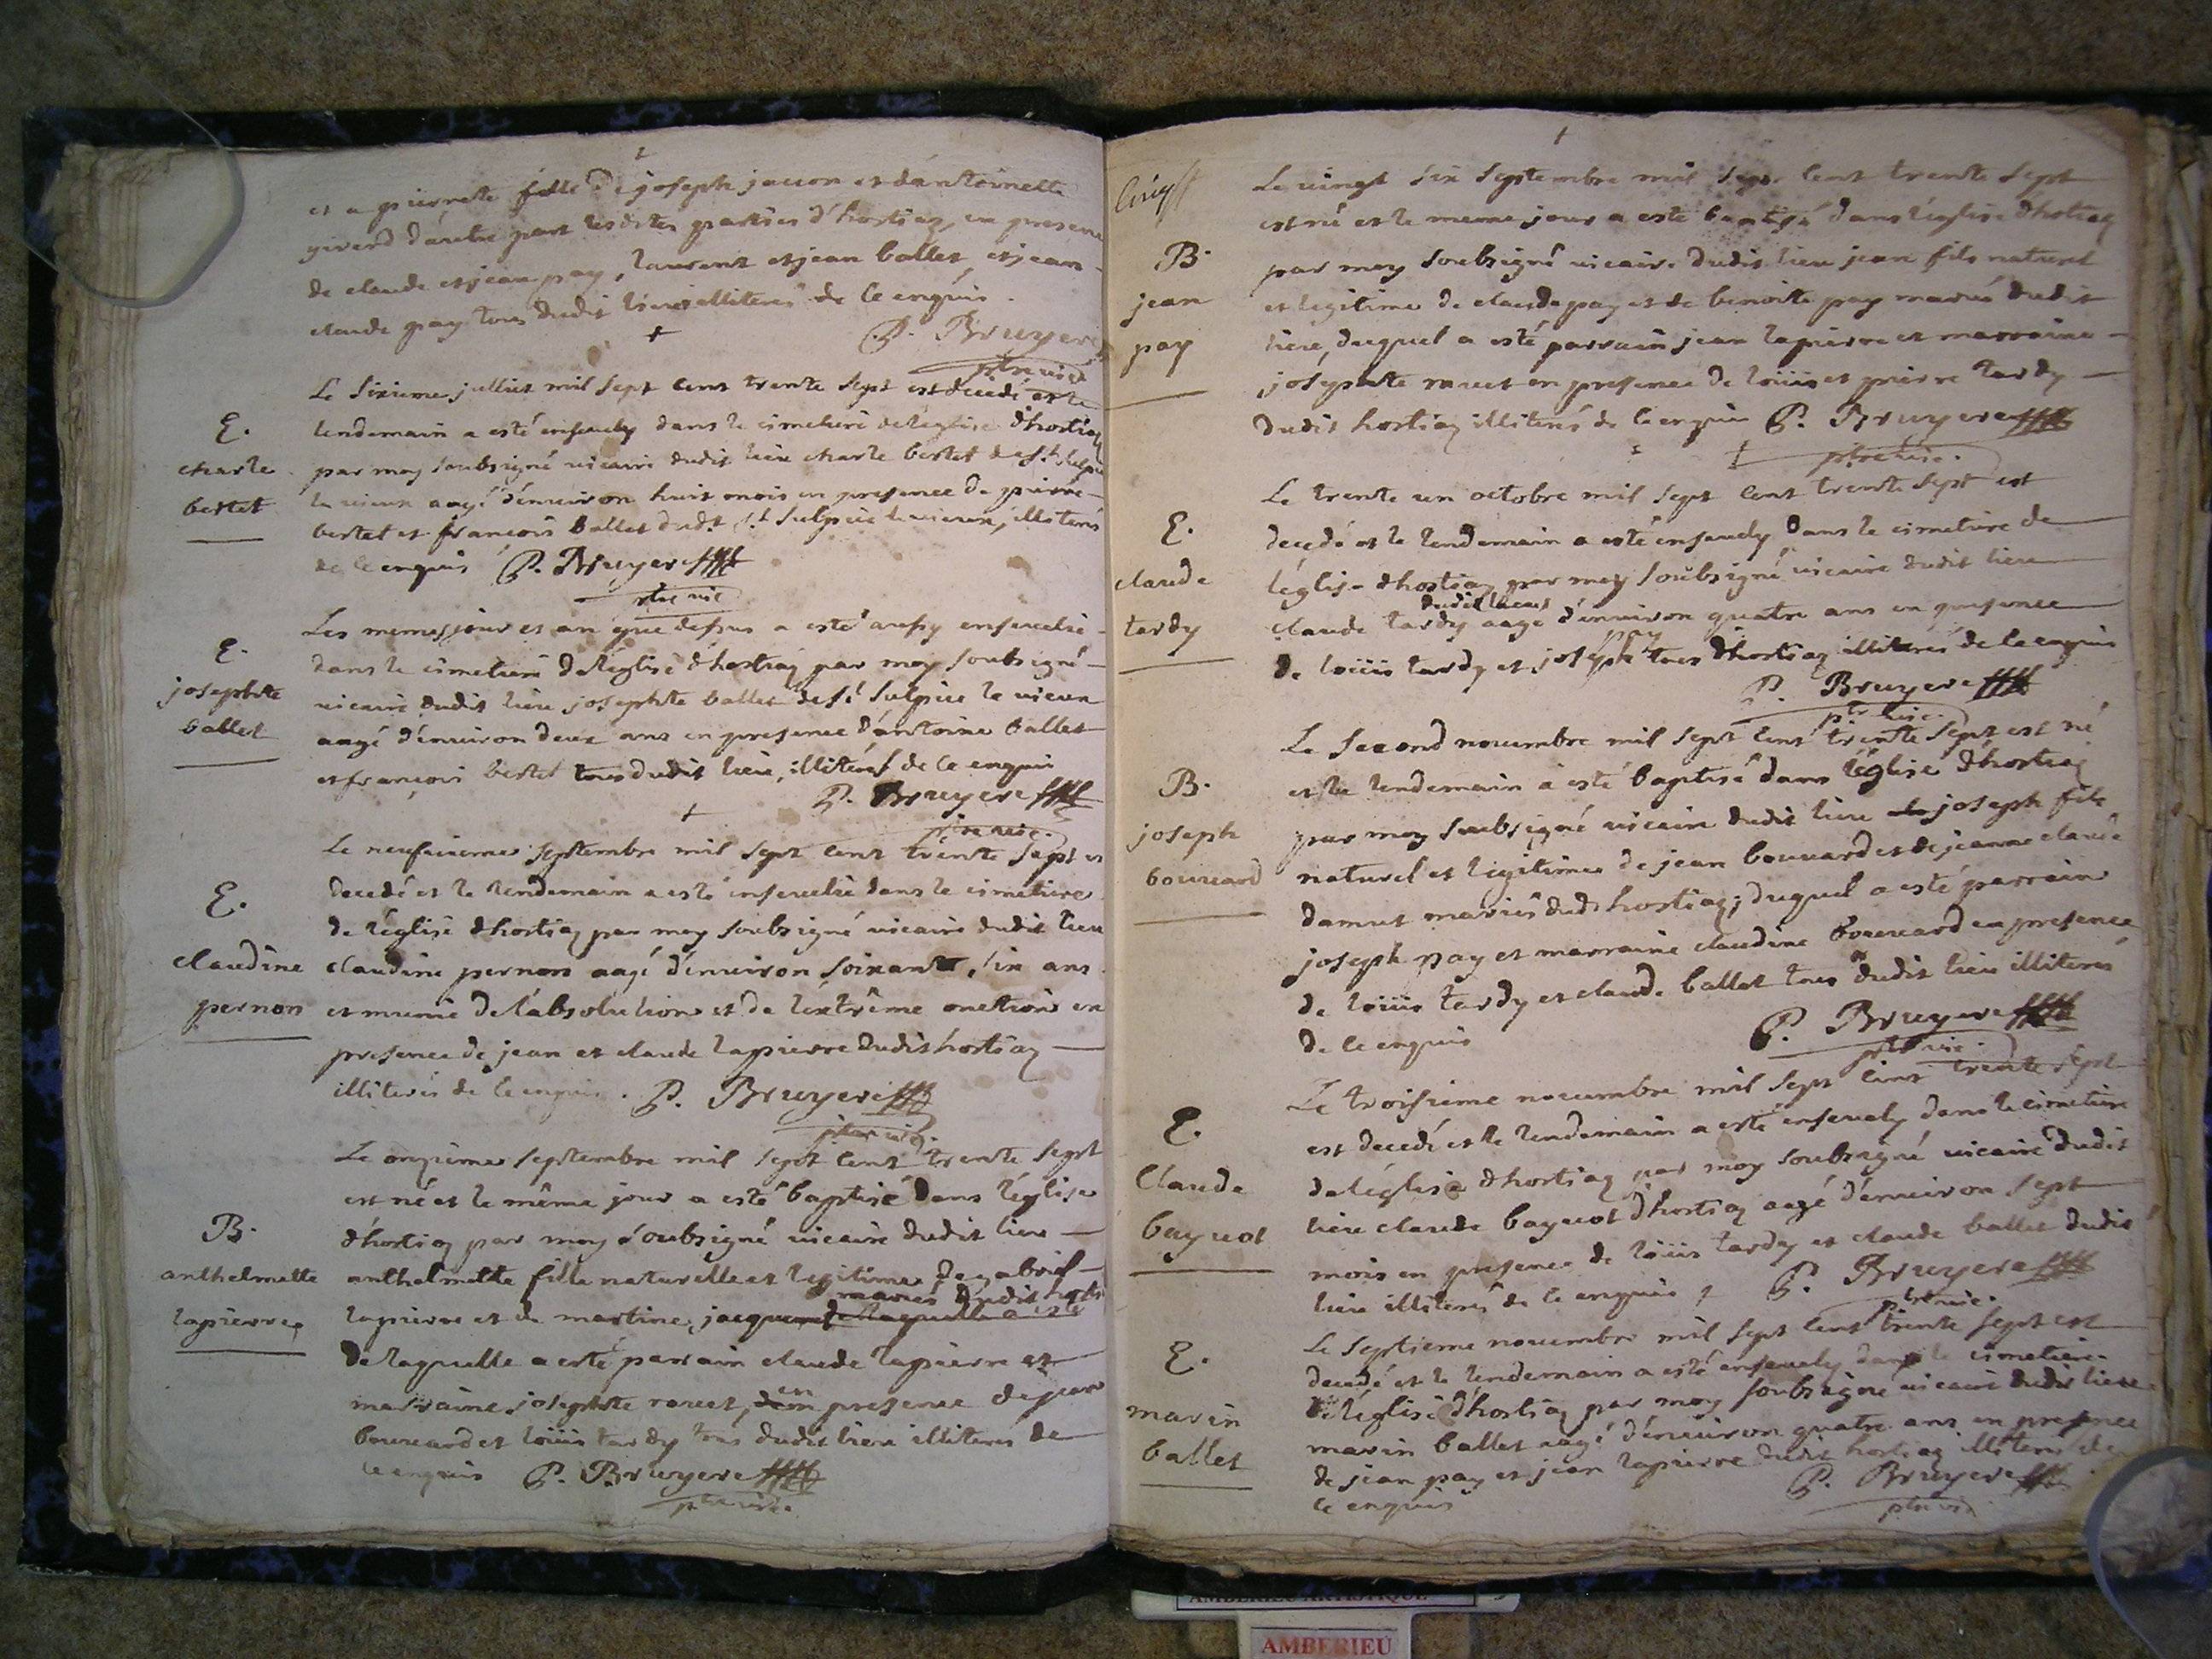 et a pierrette fille de joseph jacon et dántoinette
girerd dáutre part lesdites parties d'hostiaz, en presence
de claude et jean pay, laurent et jean ballet, et jean
claude pay tous dudit lieu illiterés de ce enquis.
P. Bruyere
ptre vic.
E.
charle
bertet
Le sixieme julliet mil sept cent trente sept est decedé et le
lendemain a esté ensevely dans le cimetiere de l'eglise d'hostiaz
par moy soubsigné vicaire dudit lieu charle bertet de st sulpice
le vieux aagé d'environ huit mois en presence de pierre
bertet et françois Ballet dudt st sulpice le vieux, illiterés
de ce enquis P. Bruyere
ptre vic
E.
josephte
ballet
Les memes jour et an que dessus a esté aussy ensevelie
dans le cimetiere de léglise d'hostiaz par moy soubsigné
vicaire dudit lieu josephte ballet de st sulpice le vieux
aagé d'environ deux ans en presence d'antoine ballet
et françois bertet tous dudit lieu, illiterés de ce enquis
P. Bruyere
ptre vic.
E.
claudine
pernon
Le neufvieme septembre mil sept cent trente sept est
decedé et le lendemain a esté ensevelie dans le cimetiere
de léglise d'hostiaz par moy soubsigné vicaire dudit lieu
claudine pernon aagé d'environ soixante, six ans
et munie de l'absolution et de l'extrême onction en
presence de jean et claude lapierre dudit hostiaz
illiterés de ce enquis. P. Bruyere
ptre vic.
B.
anthelmette
lapierre
Le onzieme septembre mil sept cent trente sept
est né et le même jour a esté baptisé dans léglise
d'hostiaz par moy soubsigné vicaire dudit lieu
anthelmette fille naturelle et legitime de gabriel
mariés dudit hosti
lapierre et de martine jacquemet de laquelle a esté
de laquelle a esté parrain claude lapierre et
marraine josephte ravet, en presence de jean
bouvard et loüis tardy tous dudit lieu illiterés de
ce enquis P. Bruyere
ptre vic.
B.
jean
pay
Le vingt six septembre mil sept cent trente sept
est né et le meme jour a esté baptisé dans léglise d'hostiaz
par moy soubsigné vicaire dudit lieu jean fils naturel
et legitime de claude pay et de benoite pay mariés dudit
lieu, duquel a esté parrain jean lapierre et marraine
josephte ravet en presence de loüis et pierre tardy
dudit hostiaz illiterés de ce enquis P. Bruyere
ptre vic.
E.
claude
tardy
Le trente un octobre mil sept cent trente sept est
decedé et le lendemain a esté ensevely dans le cimetiere de
léglise d'hostiaz par moy soubsigné vicaire dudit lieu
dudit lieu
claude tardy aagé d'environ quatre ans en presence
pay
de loüis tardy et joseph tous d'hostiaz illiterés de ce enquis
P. Bruyere
ptre vic.
B.
joseph
bouvard
Le second novembre mil sept cent trente sept est né
et le lendemain a esté baptisé dans léglise d'hostiaz
par moy soubsigné vicaire dudit lieu joseph fils
naturel et legitime de jean bouvard et de jeanne claude
damut mariés dudt hostiaz; duquel a esté parrain
joseph pay et marraine claudine bouvard en presence
de loüis tardy et claude ballet tous dudit lieu illiterés
de ce enquis
P. Bruyere
ptre vic.
E.
Claude
bayuot
Le troisieme novembre mil sept cent trente sept
est decedé et le lendemain a esté ensevely dans le cimetiere
de léglise d'hostiaz par moy soubsigné vicaire dudit
lieu claude bayuot d'hostiaz aagé d'environ sept
mois en presence de loüis tardy et claude ballet dudit
lieu illiterés de ce enquis P. Bruyere
ptre vic.
E.
marin
ballet
Le septieme novembre mil sept cent trente sept est
decedé et le lendemain a esté ensevely dans le cimetiere
de léglise d'hostiaz par moy soubsigné vicaire dudit lieu
marin ballet aagé d'environ quatre ans en presence
de jean pay et jean lapierre dudit hostiaz illiterés de
ce enquis
P. Bruyere
ptre vic
AMBERIEU ARTISTIQUE
AMBERIEU